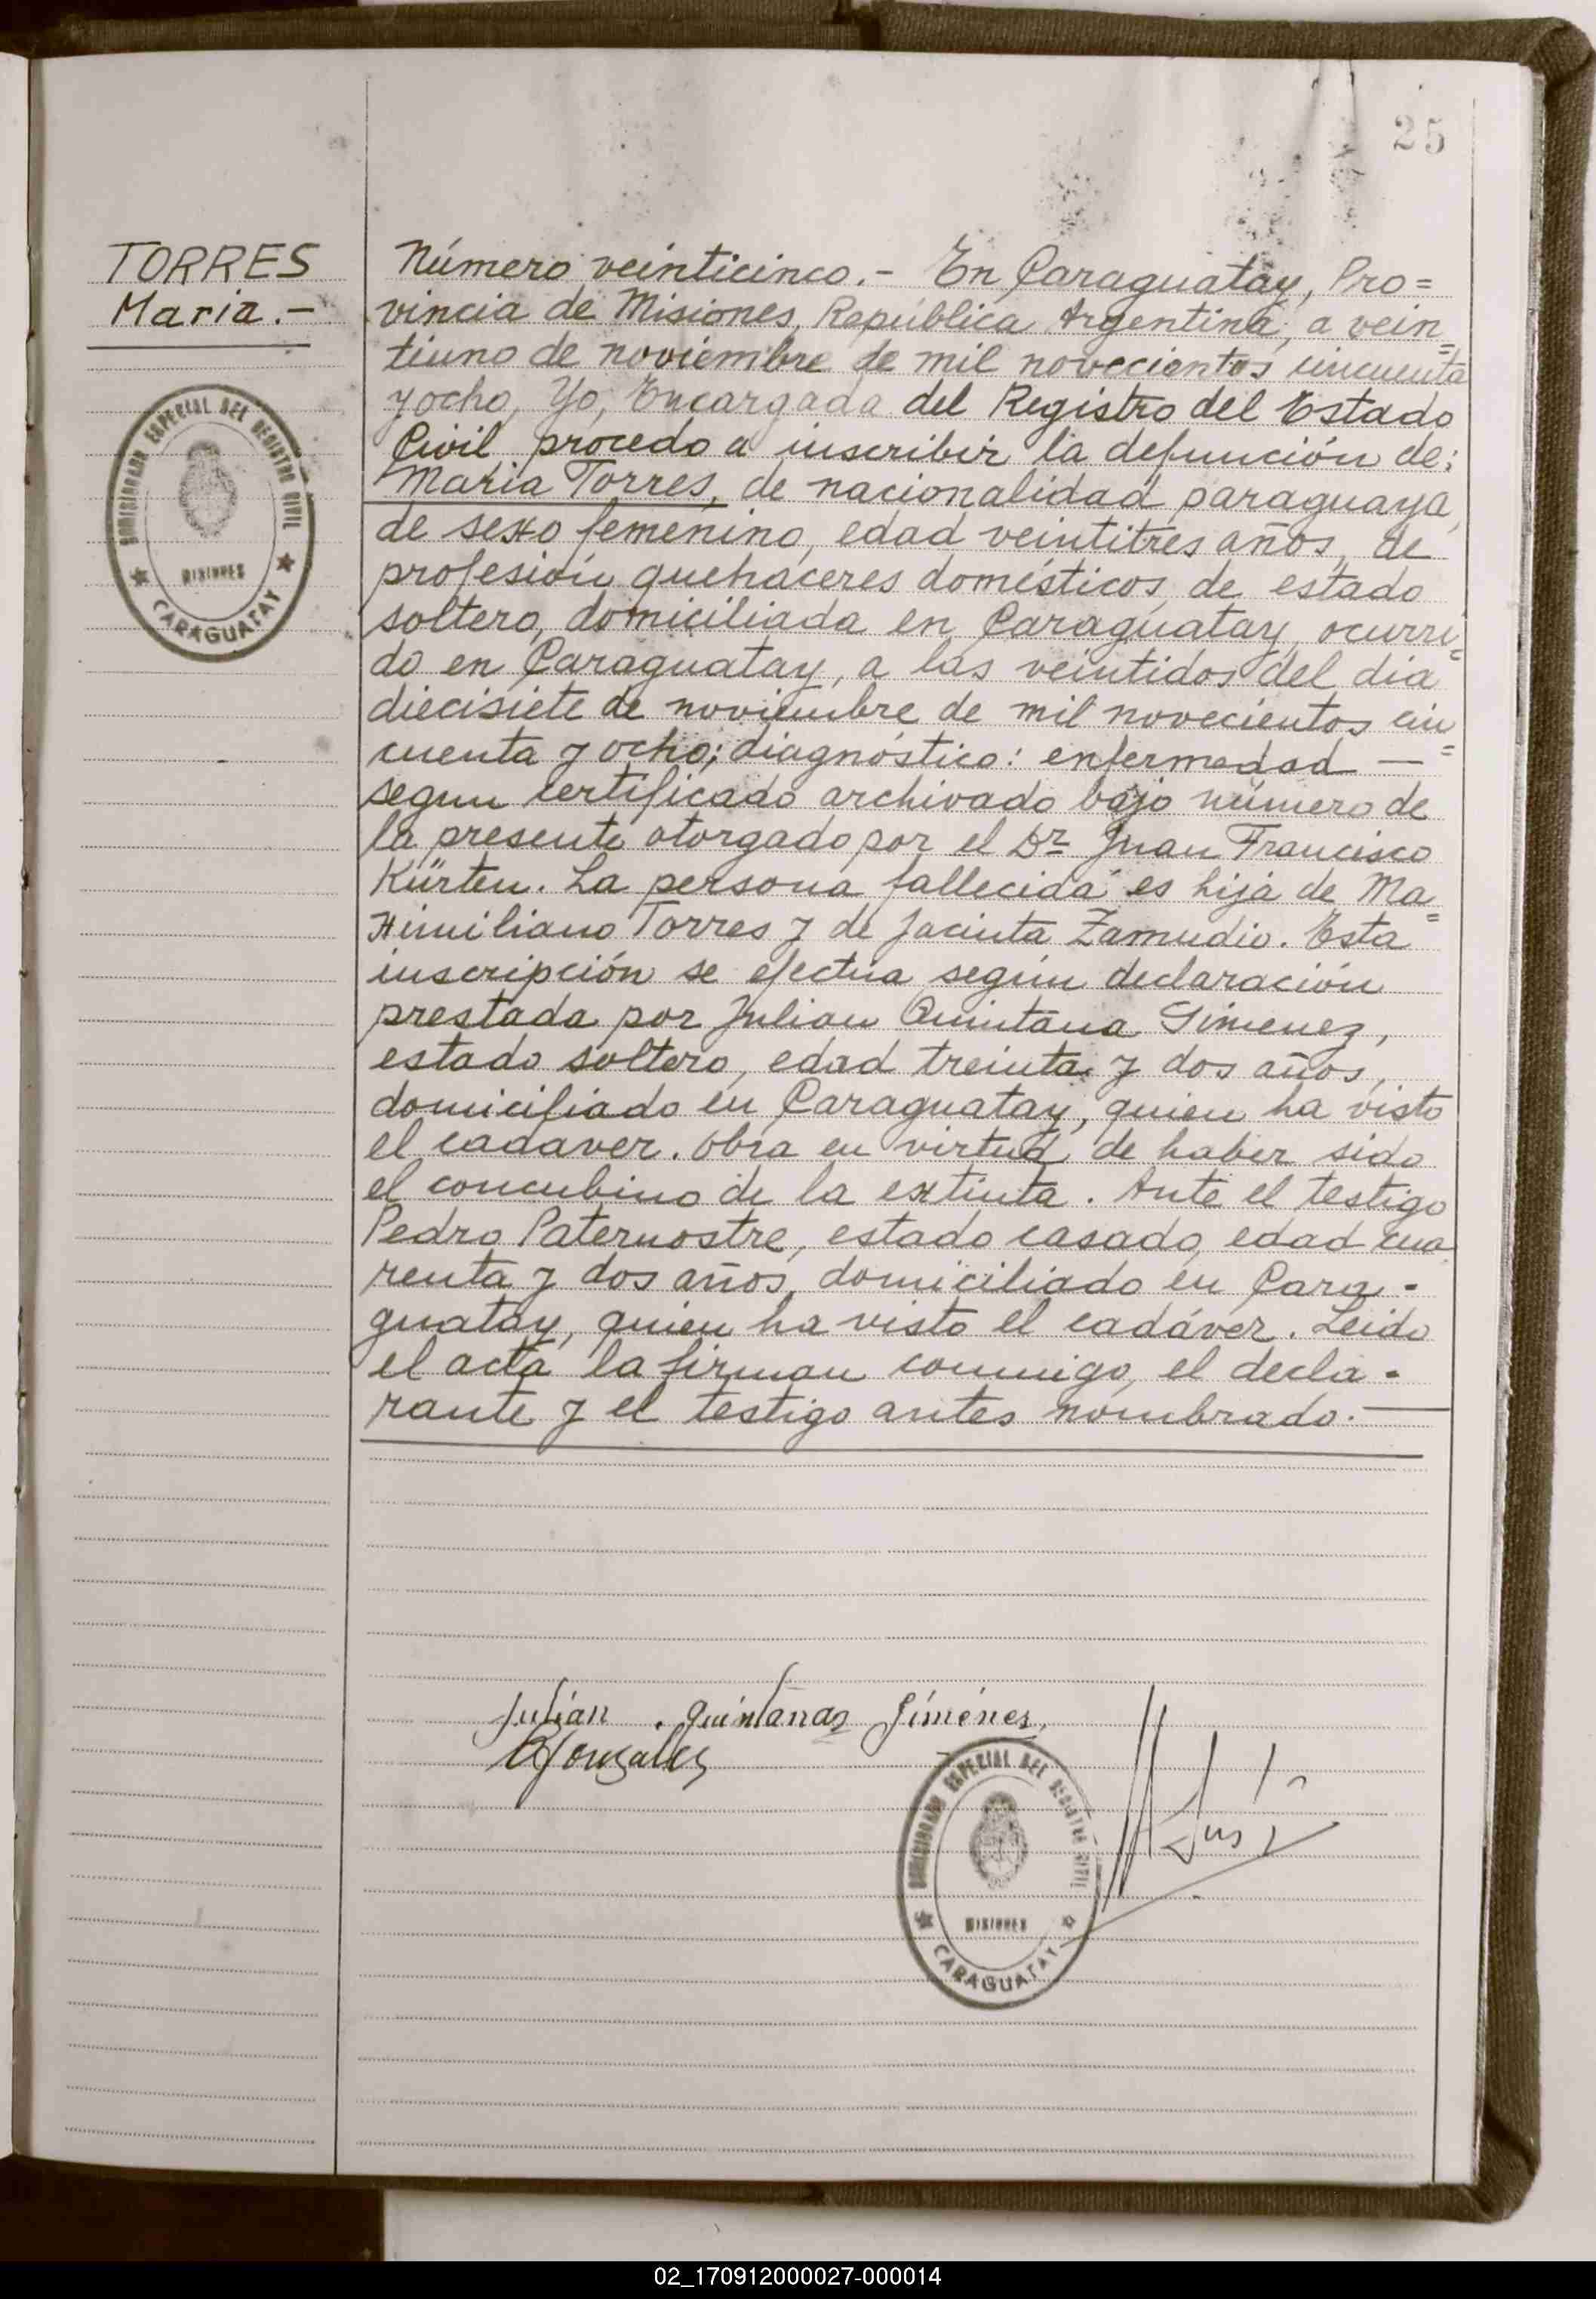 25
TORRES
Maria.-
COMISIONADO ESPECIAL DEL REGISTRO CIVIL
MISIONES
CARAGUATAY
Número veinticinco.- En Caraguatay, Pro=
vincia de Misiones, República Argentina, a vein=
tiuno de noviembre de mil novecientos cincuenta
y ocho, Yo, Encargada del Registro del Estado
Civil procedo a inscribir la defunción de:
Maria Torres, de nacionalidad paraguaya,
de sexo femenino, edad veintitres años, de
profesión quehaceres domésticos, de estado
soltero, domiciliada en Caraguatay, ocurri=
do en Caraguatay, a las veintidos del dia
diecisiete de noviembre de mil novecientos cin=
cuenta y ocho; diagnóstico: enfermedad —
segun certificado archivado bajo número de
la presente otorgado por el Dr Juan Francisco
Kürten. La persona fallecida es hija de Ma=
ximiliano Torres y de Jacinta Zamudio. Esta
inscripción se efectúa según declaración
prestada por Julian Quintana Gimenez,
estado soltero, edad treinta y dos años,
domiciliado en Caraguatay, quien ha visto
el cadaver. Obra en virtud de haber sido
el concubino de la extinta. Ante el testigo
Pedro Paternostre, estado casado, edad cua
renta y dos años, domiciliado en Cara-
guatay, quien ha visto el cadáver. Leido
el acta la firman conmigo, el decla-
rante y el testigo antes nombrado.—
Julián . Quintanas Jiménes,
Gonzalez
COMISIONADO ESPECIAL DEL REGISTRO CIVIL
MISIONES
CARAGUATAY
02_170912000027-000014